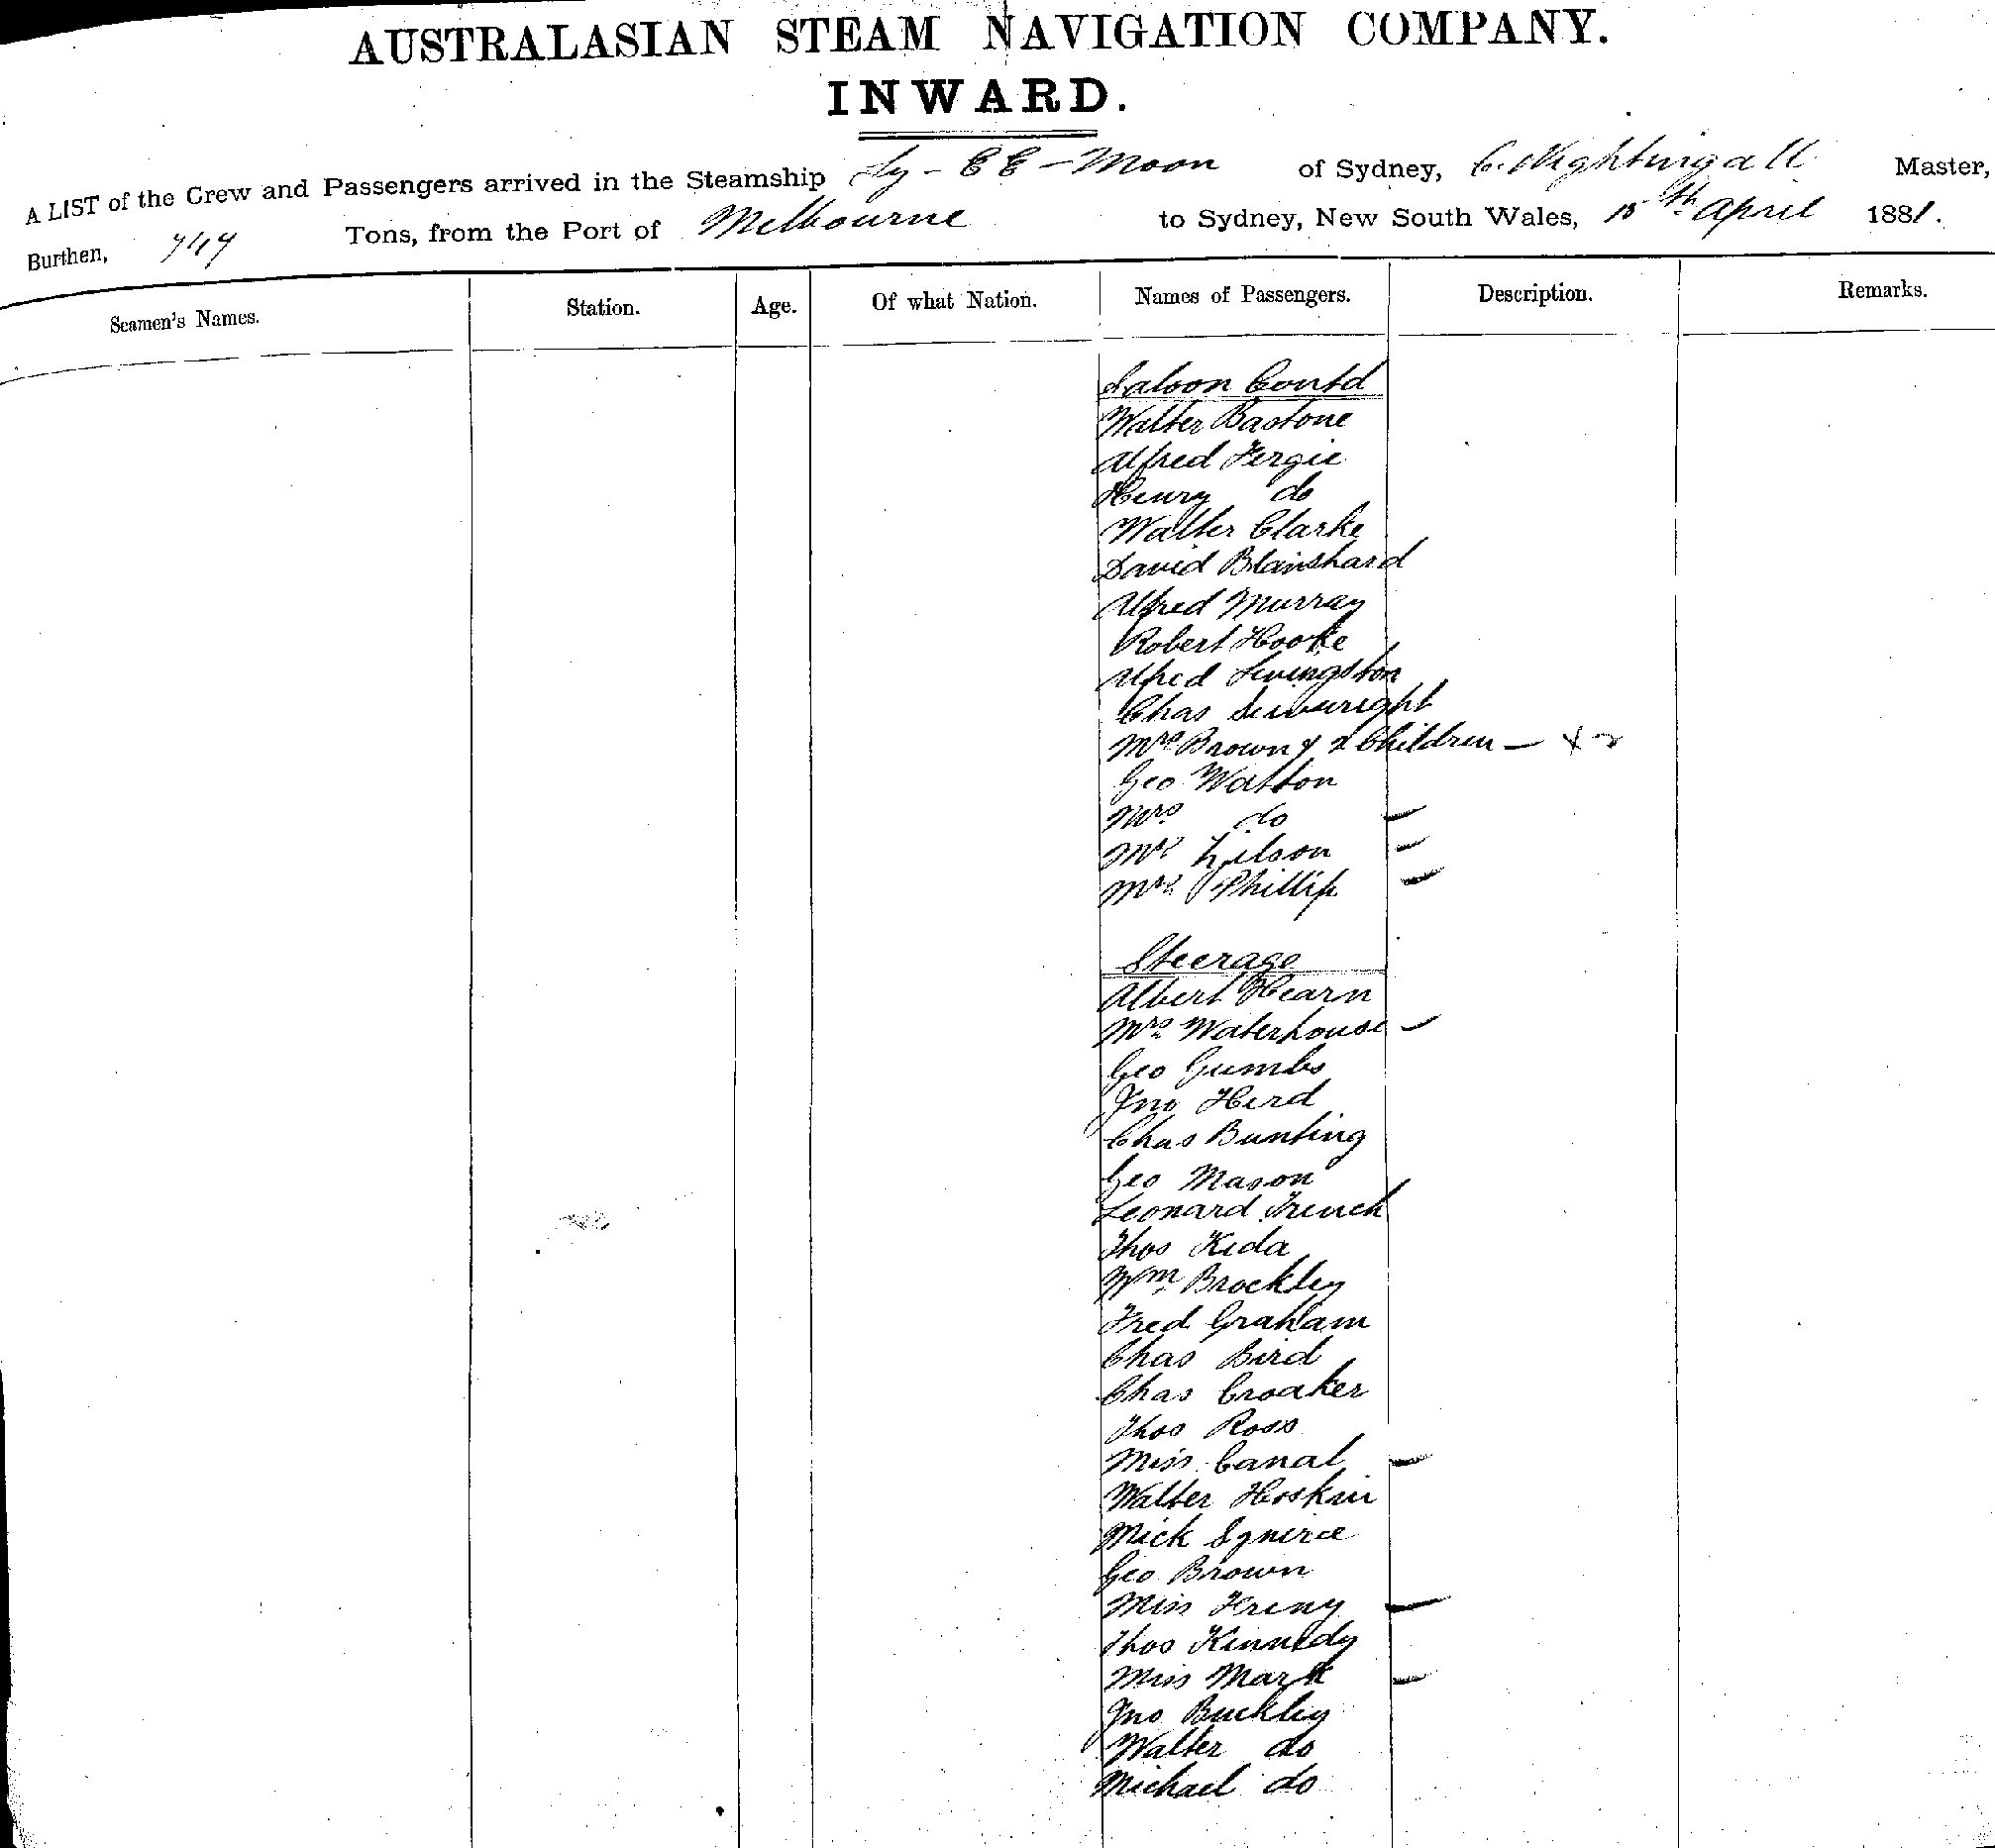 AUSTRALASIAN STEAM NAVIGATION COMPANY.
INWARD.
A LIST of the Crew and Passengers arrived in the Steamship Ly-EE-Moon of Sydney, C. Nightingall Master,
Burthen, 749 Tons, from the Port of Melbourne to Sydney, New South Wales, 15th April 1881.
Seamen's Names. Station. Age. Of what Nation. Names of Passengers. Description. Remarks.
Saloon Contd
Walter Bastone
Alfred Fergie
Henry do
Walter Clarke
David Blanshard
Alfred Murray
Robert Hooke
Alfred Livingston
Chas
Mrs Brown & 2 Children —
Geo Watson
Mrs do —
—
Mrs Phillip —
Steerage
Albert Hearn
Mrs Waterhouse —
Geo Gumbs
Jno Herd
Chas Bunting
Geo Mason
Leonard French
Thos Kida
Wm Brockley
Fred Graham
Chas Bird
Chas Croaker
Thos Ross
Miss Canal —
Walter Hoskin
Mick Squire
Geo Brown
Miss Freny —
Thos Kennedy
Miss Mark —
Jno Buckley
Walter do
Michael do